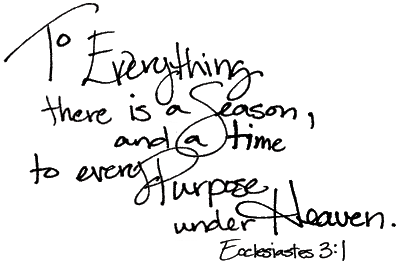 To Everything
there is a Season,
and a time
to every Purpose
under Heaven.
Ecclesiastes 3:1